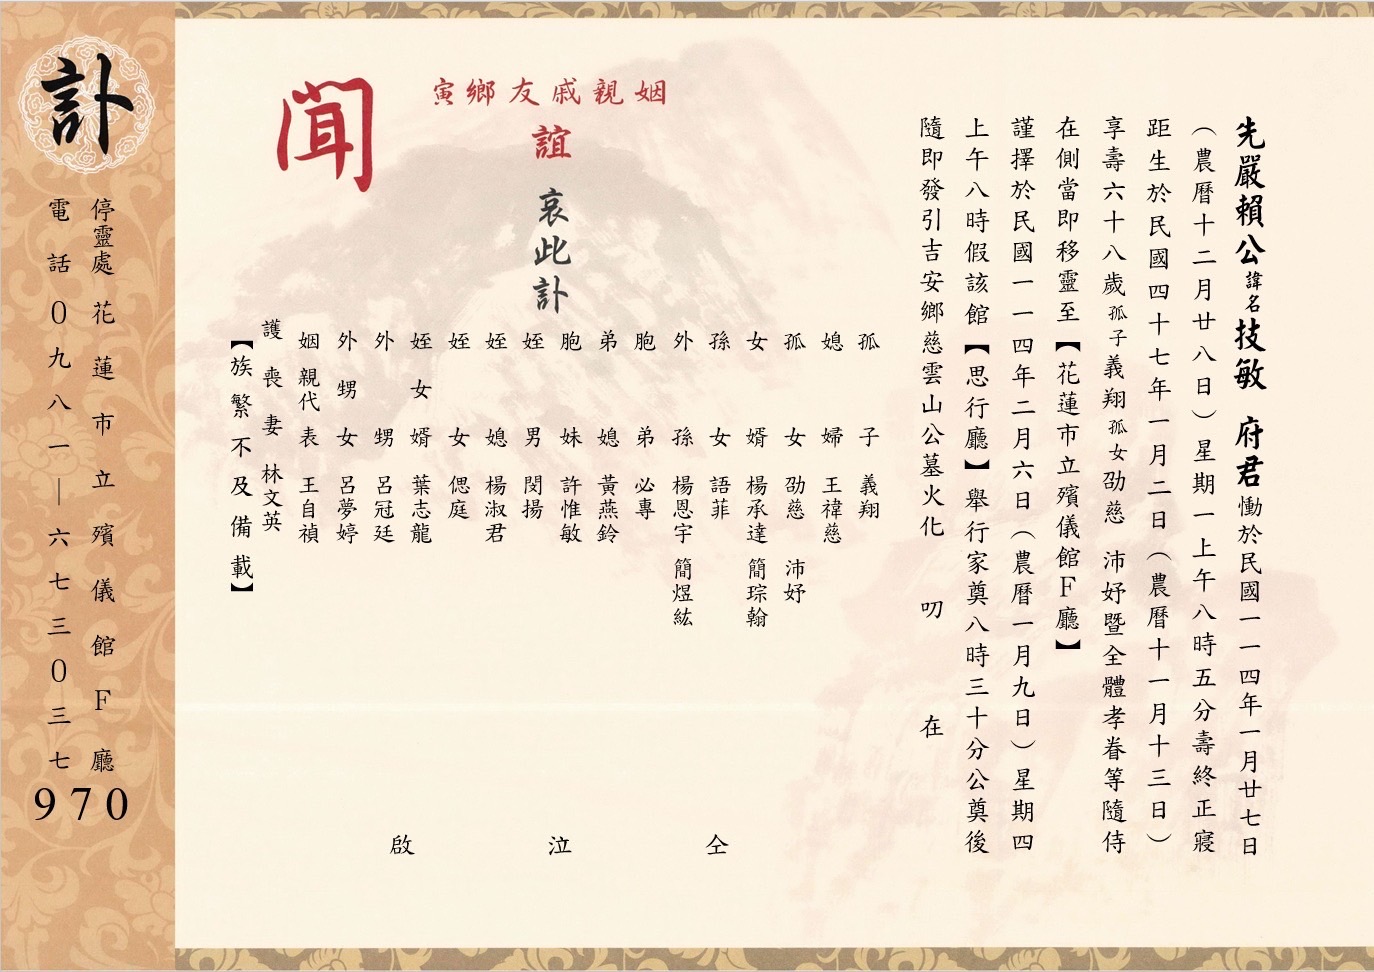 先嚴賴公諱名技敏 府君慟於民國一一四年一月廿七日
（農曆十二月廿八日）星期一上午八時五分壽終正寢
距生於民國四十七年一月二日（農曆十一月十三日）
享壽六十八歲孤子義翔孤女劭慈 沛妤暨全體孝眷等隨侍
在側當即移靈至【花蓮市立殯儀館F廳】
謹擇於民國一一四年二月六日（農曆一月九日）星期四
上午八時假該館【思行廳】舉行家奠八時三十分公奠後
隨即發引吉安鄉慈雲山公墓火化 叨 在
姻親戚友鄉寅
誼
哀此訃
聞
孤子 義翔
媳婦 王禕慈
孤女 劭慈 沛妤
女婿 楊承達 簡琮翰
孫女 語菲
外孫 楊恩宇 簡煜紘
胞弟 必專
弟媳 黃燕鈴
胞妹 許惟敏
姪男 閔揚
姪媳 楊淑君
姪女 偲庭
姪女婿 葉志龍
外甥 呂冠廷
外甥女 呂夢婷
姻親代表 王自禎
護喪妻 林文英
【族繁不及備載】
仝 泣 啟
訃
停靈處 花蓮市立殯儀館F廳
電話０九八一—六七三０三七
970